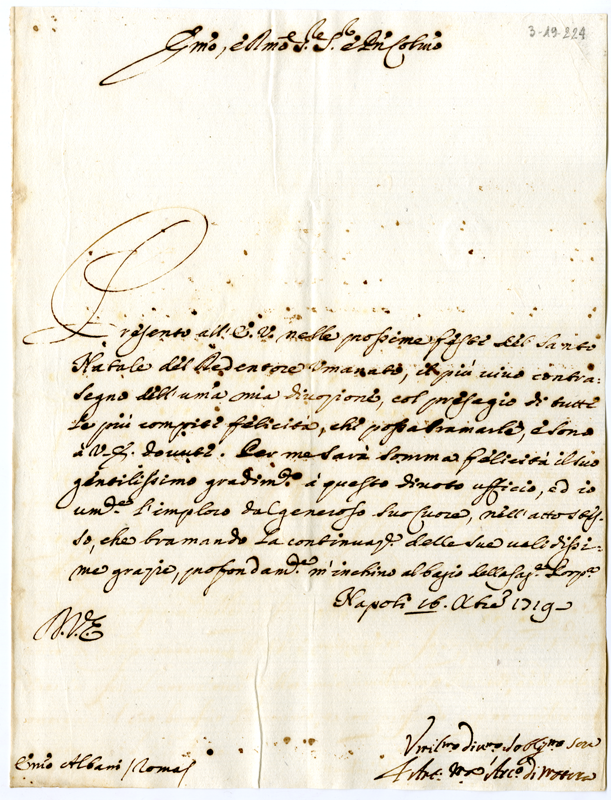 3-19-224
Emo, e Rmo Sre Sre e Pn Colmo
Presento all'E. V. nelle prossime feste del Santo
Natale del Redentore Umanato, il più vivo contra-
segno dell'uma mia divozione, col presagio di tutte
le più compite felicità, che possa bramarle, e sono
à V. E. dovute. Per me sarà somma felicità il suo
gentilissimo gradimto à questo divoto ufficio, ed io
umte l'imploro dal generoso suo cuore, nell'atto stes-
so, che bramando la continuazne delle sue validissi-
me grazie, profondamte m'inchino al bacio della Sag.
Napoli 16. Xbre 1719
D. V. E.
Emo Albani /Roma/
Umilmo divmo oblgmo
Arco di